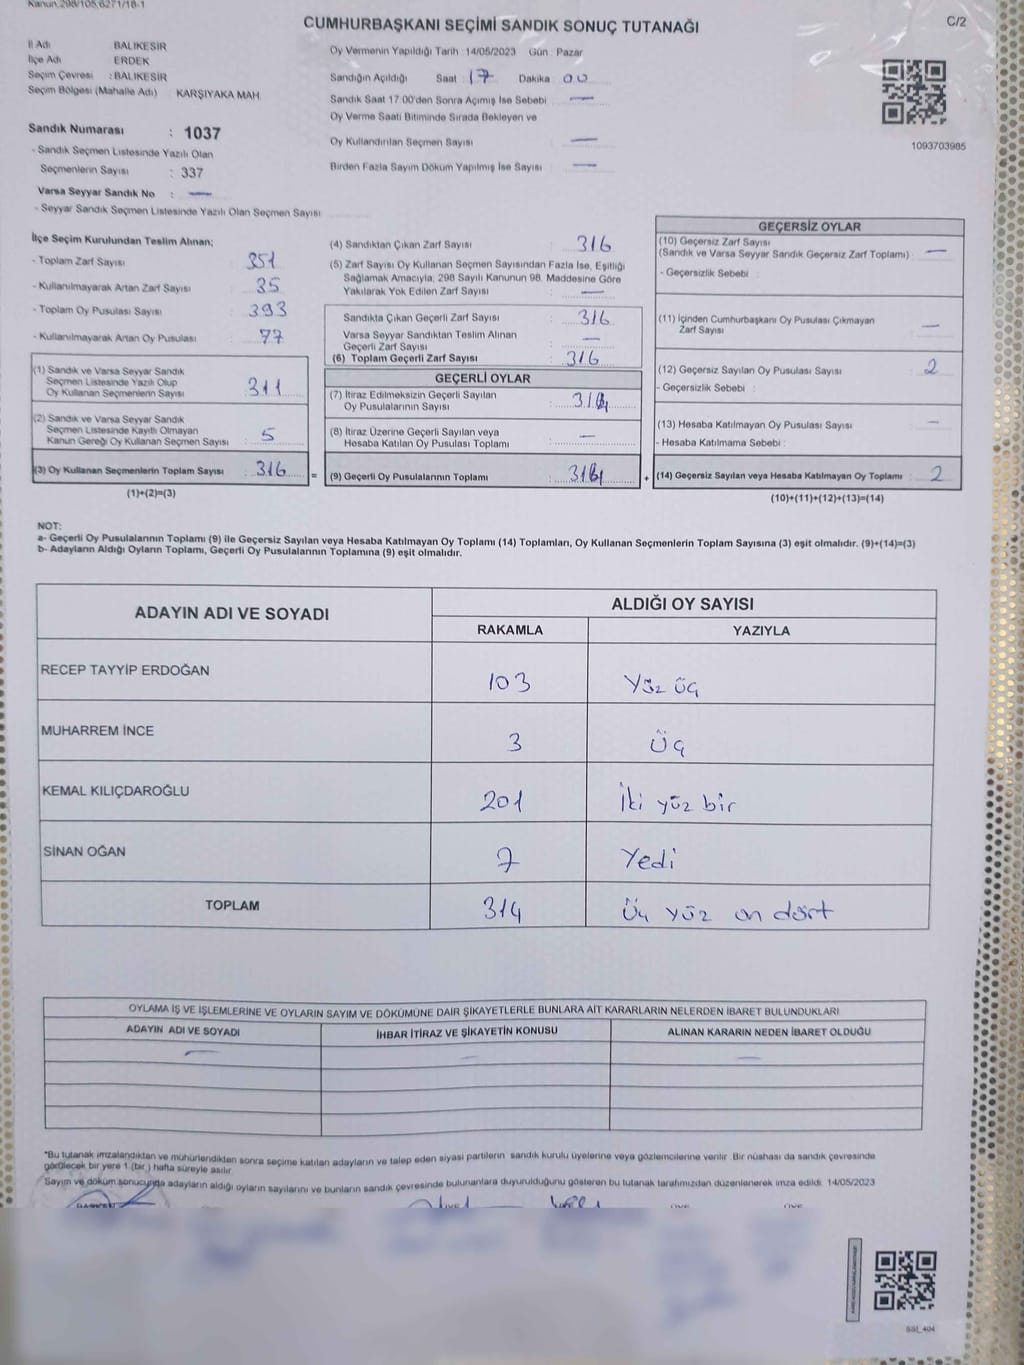 Kanun.298/105,6271/18-1
CUMHURBAŞKANI SEÇİMİ SANDIK SONUÇ TUTANAĞI
C/2
İl Adı BALIKESİR
İlçe Adı ERDEK
Seçim Çevresi : BALIKESİR
Seçim Bölgesi (Mahalle Adı) KARŞIYAKA MAH.
Sandık Numarası : 1037
- Sandık Seçmen Listesinde Yazılı Olan
Seçmenlerin Sayısı : 337
Varsa Seyyar Sandık No : —
- Seyyar Sandık Seçmen Listesinde Yazılı Olan Seçmen Sayısı
Oy Vermenin Yapıldığı Tarih :14/05/2023 Gün : Pazar
Sandığın Açıldığı Saat : 17 Dakika : 00
Sandık Saat 17:00'den Sonra Açımış İse Sebebi : —
Oy Verme Saati Bitiminde Sırada Bekleyen ve
Oy Kullandırılan Seçmen Sayısı : —
Birden Fazla Sayım Döküm Yapılmış İse Sayısı : —
1093703985
İlçe Seçim Kurulundan Teslim Alınan;
- Toplam Zarf Sayısı : 351
- Kullanılmayarak Artan Zarf Sayısı : 35
- Toplam Oy Pusulası Sayısı : 393
- Kullanılmayarak Artan Oy Pusulası : 77
(1) Sandık ve Varsa Seyyar Sandık
Seçmen Listesinde Yazılı Olup
Oy Kullanan Seçmenlerin Sayısı : 311
(2) Sandık ve Varsa Seyyar Sandık
Seçmen Listesinde Kayıtlı Olmayan
Kanun Gereği Oy Kullanan Seçmen Sayısı : 5
(3) Oy Kullanan Seçmenlerin Toplam Sayısı : 316
(1)+(2)=(3)
(4) Sandıktan Çıkan Zarf Sayısı : 316
(5) Zarf Sayısı Oy Kullanan Seçmen Sayısından Fazla İse, Eşitliği
Sağlamak Amacıyla; 298 Sayılı Kanunun 98. Maddesine Göre
Yakılarak Yok Edilen Zarf Sayısı : —
Sandıkta Çıkan Geçerli Zarf Sayısı : 316
Varsa Seyyar Sandıktan Teslim Alınan
Geçerli Zarf Sayısı : —
(6) Toplam Geçerli Zarf Sayısı : 316
=
GEÇERLİ OYLAR
(7) İtiraz Edilmeksizin Geçerli Sayılan
Oy Pusulalarının Sayısı : 314
(8) İtiraz Üzerine Geçerli Sayılan veya
Hesaba Katılan Oy Pusulası Toplamı : —
(9) Geçerli Oy Pusulalarının Toplamı : 314
+
GEÇERSİZ OYLAR
(10) Geçersiz Zarf Sayısı
(Sandık ve Varsa Seyyar Sandık Geçersiz Zarf Toplamı) : —
- Geçersizlik Sebebi :
(11) İçinden Cumhurbaşkanı Oy Pusulası Çıkmayan
Zarf Sayısı : —
(12) Geçersiz Sayılan Oy Pusulası Sayısı : 2
- Geçersizlik Sebebi :
(13) Hesaba Katılmayan Oy Pusulası Sayısı : —
- Hesaba Katılmama Sebebi :
(14) Geçersiz Sayılan veya Hesaba Katılmayan Oy Toplamı : 2
(10)+(11)+(12)+(13)=(14)
NOT:
a- Geçerli Oy Pusulalarının Toplamı (9) ile Geçersiz Sayılan veya Hesaba Katılmayan Oy Toplamı (14) Toplamları, Oy Kullanan Seçmenlerin Toplam Sayısına (3) eşit olmalıdır. (9)+(14)=(3)
b- Adayların Aldığı Oyların Toplamı, Geçerli Oy Pusulalarının Toplamına (9) eşit olmalıdır.
ADAYIN ADI VE SOYADI
ALDIĞI OY SAYISI
RAKAMLA YAZIYLA
RECEP TAYYİP ERDOĞAN 103 Yüz üç
MUHARREM İNCE 3 Üç
KEMAL KILIÇDAROĞLU 201 İki yüz bir
SİNAN OĞAN 7 Yedi
TOPLAM 314 Üç yüz on dört
OYLAMA İŞ VE İŞLEMLERİNE VE OYLARIN SAYIM VE DÖKÜMÜNE DAİR ŞİKAYETLERLE BUNLARA AİT KARARLARIN NELERDEN İBARET BULUNDUKLARI
ADAYIN ADI VE SOYADI İHBAR İTİRAZ VE ŞİKAYETİN KONUSU ALINAN KARARIN NEDEN İBARET OLDUĞU
— — —
*Bu tutanak imzalandıktan ve mühürlendikten sonra seçime katılan adayların ve talep eden siyasi partilerin sandık kurulu üyelerine veya gözlemcilerine verilir. Bir nüshası da sandık çevresinde
görülecek bir yere 1 (bir ) hafta süreyle asılır.
Sayım ve döküm sonucunda adayların aldığı oyların sayılarını ve bunların sandık çevresinde bulunanlara duyurulduğunu gösteren bu tutanak tarafımızdan düzenlenerek imza edildi. 14/05/2023
SSI_404